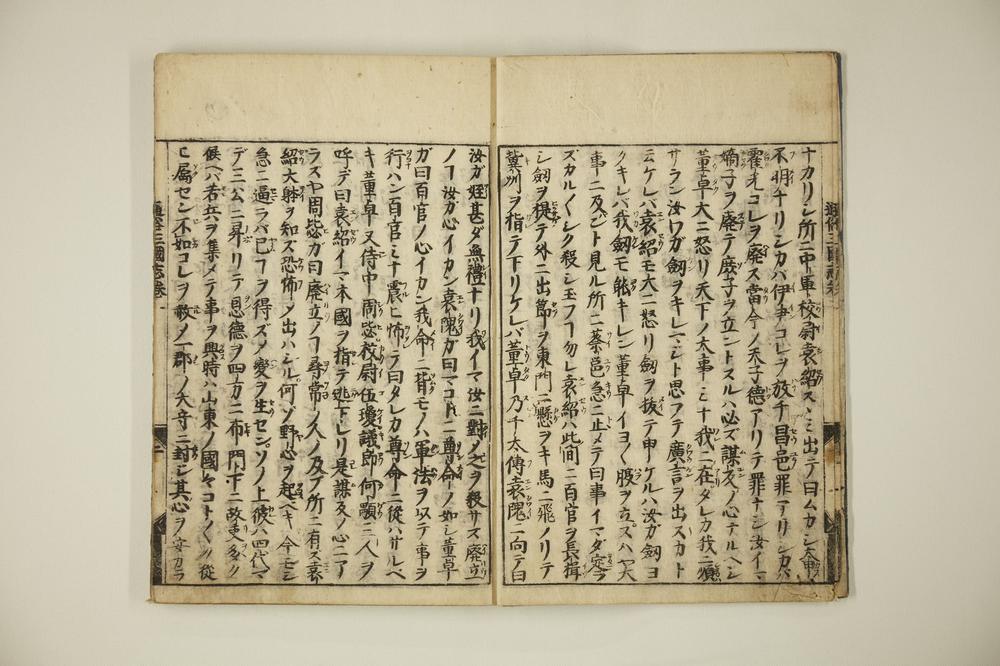 ナカリシ所ニ中軍校尉袁紹スヽミ出テ曰ムカシ太甲
不明ナリシカバ伊尹コレヲ放チ昌邑罪アリシカバ
霍光コレヲ廃ス當今ノ天子德アリテ罪ナシ汝イマ
嫡子ヲ廃テ庶子ヲ立ントスルハ必ズ謀反ノ心テルベシ
董卓大ニ怒リ天下ノ大事ミナ我ニ在タレカ我ニ順
サラン汝ワガ劔ヲキレマジト思フテ廣言ヲ出スカト
云ケレバ袁紹モ大ニ怒リ劔ヲ抜テ申ケルハ汝ガ劔ヨ
クキレバ我劔モ能キレン董卓イヨ〱腹ヲ立スハヤ大
事ニ及ビント見ル所ニ蔡邕急ニ止メテ曰事イマダ定ラ
ズカル〱シク殺シ玉フコ勿レ袁紹ハ此間ニ百官ヲ長揖
シ劔ヲ提テ外ニ出節ヲ東門ニ懸ヲキ馬ニ飛ノリテ
冀州ヲ指テ下リケレバ董卓乃チ太傅袁隗ニ向テ曰
汝ガ姪甚ダ無禮ナリ我イマ汝ニ對メ之ヲ殺サズ廃立
ノコ汝ガ心イカン袁隗ガ曰マコトニ尊命ノ如シ董卓
ガ曰百官ノ心イカン我命ニ背モノハ軍法ヲ以テ事ヲ
行ハン百官ミナ震ヒ怖テ曰タレカ尊命ニ從ハサルベ
キ董卓又侍中周毖校尉伍瓊議郎何顒三人ヲ
呼デ曰袁紹イマ本國ヲ指テ逃下レリ是謀反ノ心ニア
ラスヤ周毖カ曰廃立ノコ尋常ノ人ノ及ブ所ニ有ズ袁
紹大躰ヲ知ズ恐怖メ出ハシル何ゾ野心ヲ起スベキ今モシ
急ニ逼ラバ已コヲ得ズメ變ヲ生センソノ上彼ハ四代マ
デ三公ニ昇リテ恩德ヲ四方ニ布門下ニ故吏多ク
候ヘバ若兵ヲ集メテ事ヲ興時ハ山東ノ國々コト〱ク從
ヒ屬セン不如コレヲ赦メ一郡ノ大守ニ封シ其心ヲ安カラ
通俗三國志卷一